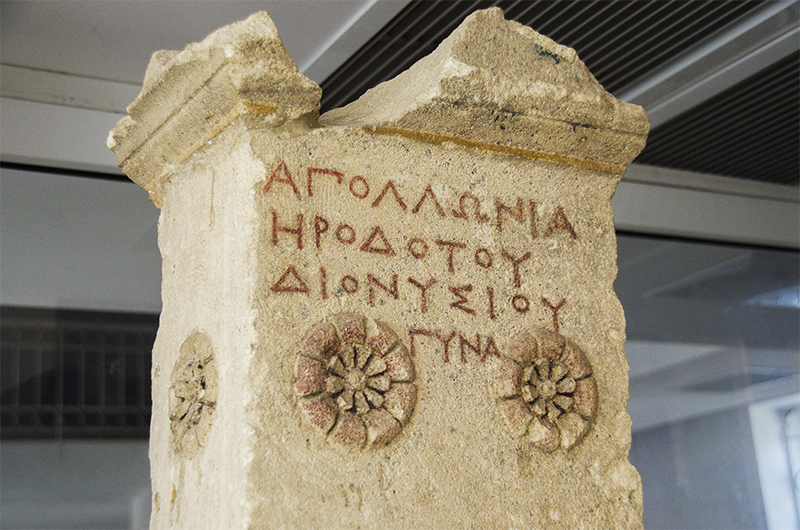 ΑΠΟΛΛΩΝΙΑ
ΗΡΟΔΟΤΟΥ
ΔΙΟΝΥΣΙΟΥ
ΓΥΝΑ